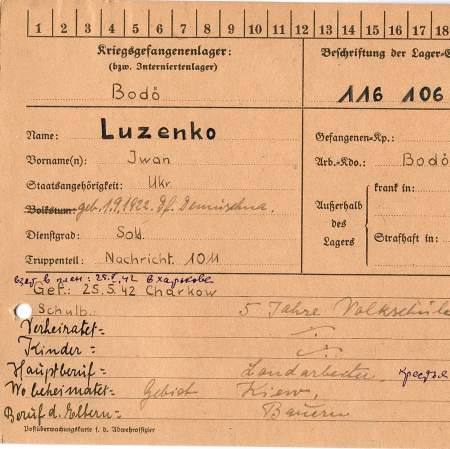 1 2 3 4 5 6 7 8 9 10 11 12 13 14 15 16 17 18
Kriegsgefangenenlager:
(bzw. Interniertenlager)
Bodö
Beschriftung der Lager-E
116 106
Name: Luzenko
Vorname(n): Iwan
Staatsangehörigkeit: Ukr.
Volkstum: geb. 1.9.1922. Df.
Dienstgrad: Sold.
Truppenteil: Nachricht. 1011
Gefangenen-Kp.:
Arb.-Kdo.: Bodö
Außerhalb des Lagers
krank in:
Strafhaft in:
взят в плен: 25.V.42 в Харькове
Gef: 25.5.42 Charkow
Schulb.: 5 Jahre Volkschule
Verheiratet=
Kinder =
Hauptberuf= Landarbeiter,
Wo beheimatet= Gebiet Kiew,
Beruf d. Eltern= Bauern
Postüberwachungskarte f. d. Abwehroffizier